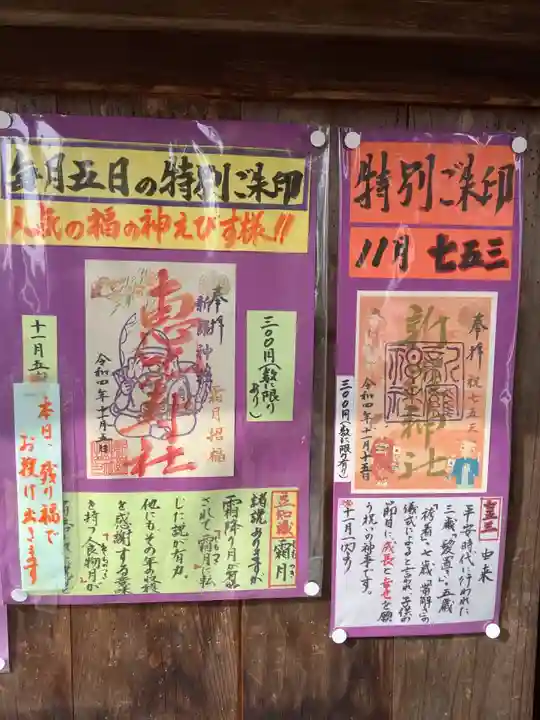 毎月五日の特別ご朱印
人気の福の神えびす様!!
奉拝
新羅神社
恵比寿社
霜月招福
令和四年十一月五日
三〇〇円(数に限りあり)
十一月五
本日、残り福で
お授け出きます
豆知識 霜月
諸説ありますが
霜降り月が
されて「霜月」に転
じた説が有力。
他にもその年の収穫
を感謝する意味
を持つ食物月が
特別ご朱印
11月 七五三
奉拝 祝七五三
新羅神社
令和四年十一月十五日
三〇〇円(数に限り有り)
七五三 由来
平安時代に行われた
三歳「髪置」、五歳
「袴着」、七歳「帯解き」の
儀式によると言われ、子供の
節目に、成長と幸せを願
う祝いの神事です。
十一月一内